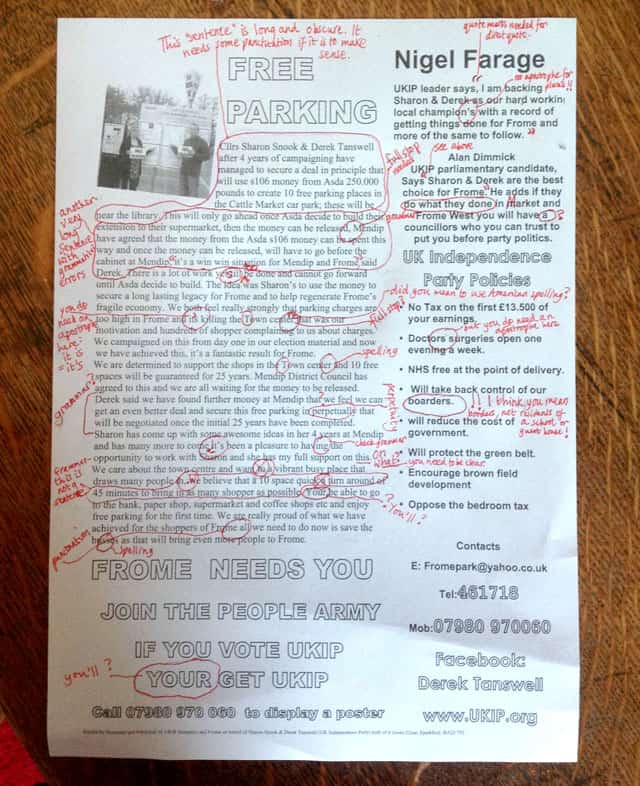 This "sentence" is long and obscure. It
needs some punctuation if it is to make
sense.
FREE
PARKING
Cllrs Sharon Snook & Derek Tanswell
after 4 years of campaigning have
managed to secure a deal in principle that
will use s106 money from Asda 250,000
pounds to create 10 free parking places in
the Cattle Market car park; these will be
near the library. This will only go ahead once Asda decide to build their
extension to their supermarket, then the money can be released. Mendip
have agreed that the money from the Asda s106 money can be spent this
way and once the money can be released, will have to go before the
cabinet at Mendip, it's a win win situation for Mendip and Frome said
Derek. There is a lot of work still to be done and cannot go forward
until Asda decide to build. The idea was Sharon's to use the money to
secure a long lasting legacy for Frome and to help regenerate Frome's
fragile economy. We both feel really strongly that parking charges are
too high in Frome and its killing the Town center that was our
motivation and hundreds of shopper complaining to us about charges.
We campaigned on this from day one in our election material and now
we have achieved this, it's a fantastic result for Frome.
We are determined to support the shops in the Town center and 10 free
spaces will be guaranteed for 25 years. Mendip District Council has
agreed to this and we are all waiting for the money to be released.
Derek said we have found further money at Mendip that we feel we can
get an even better deal and secure this free parking in perpetually that
will be negotiated once the initial 25 years have been completed.
Sharon has come up with some awesome ideas in her 4 years at Mendip
and has many more to come it's been a pleasure to having the
opportunity to work with Sharon and she has my full support on this.
We care about the town centre and want a vibrant busy place that
draws many people. we believe that a 10 space quick turn around of
45 minutes to bring in as many shopper as possible. Your able to go
to the bank, paper shop, supermarket and coffee shops etc and enjoy
free parking for the first time. We are really proud of what we have
achieved for the shoppers of Frome all we need to do now is save the
as that will bring even more people to Frome.
another
very
long
sentence
with
grammatical
errors
you do
need an
apostrophe
here:
it is
= it's
grammar?
Grammar-
this is
not a
sentence
punctuation
spelling
full stop
needed
full stop?
spelling
perpetuity
check grammar
on
what?
you need to be clear
? You'll?
FROME NEEDS YOU
JOIN THE PEOPLE ARMY
IF YOU VOTE UKIP
you'll?
YOUR GET UKIP
Call 07980 970 060 to display a poster
quote marks needed for
direct quote.
Nigel Farage
no apostrophe for
plurals!!
UKIP leader says, I am backing
Sharon & Derek as our hard workin
local champion's with a record of
getting things done for Frome and
more of the same to follow.
see above
Alan Dimmick
UKIP parliamentary candidate,
Says Sharon & Derek are the best
choice for Frome. He adds if they
do what they done in Market and
Frome West you will have a
councillors who you can trust to
put you before party politics.
UK Independence
Party Policies
did you mean to use American spelling?
• No Tax on the first £13.500 of
your earnings.
but you do need an
apostrophe here
• Doctors surgeries open one
evening a week.
• NHS free at the point of delivery.
• Will take back control of our
boarders.
!! I think you mean
borders, not residents of
a school or
guest house!
will reduce the cost of
government.
• Will protect the green belt.
• Encourage brown field
development
• Oppose the bedroom tax
Contacts
E: Fromepark@yahoo.co.uk
Tel:461718
Mob:07980 970060
Facebook:
Derek Tanswell
www.UKIP.org